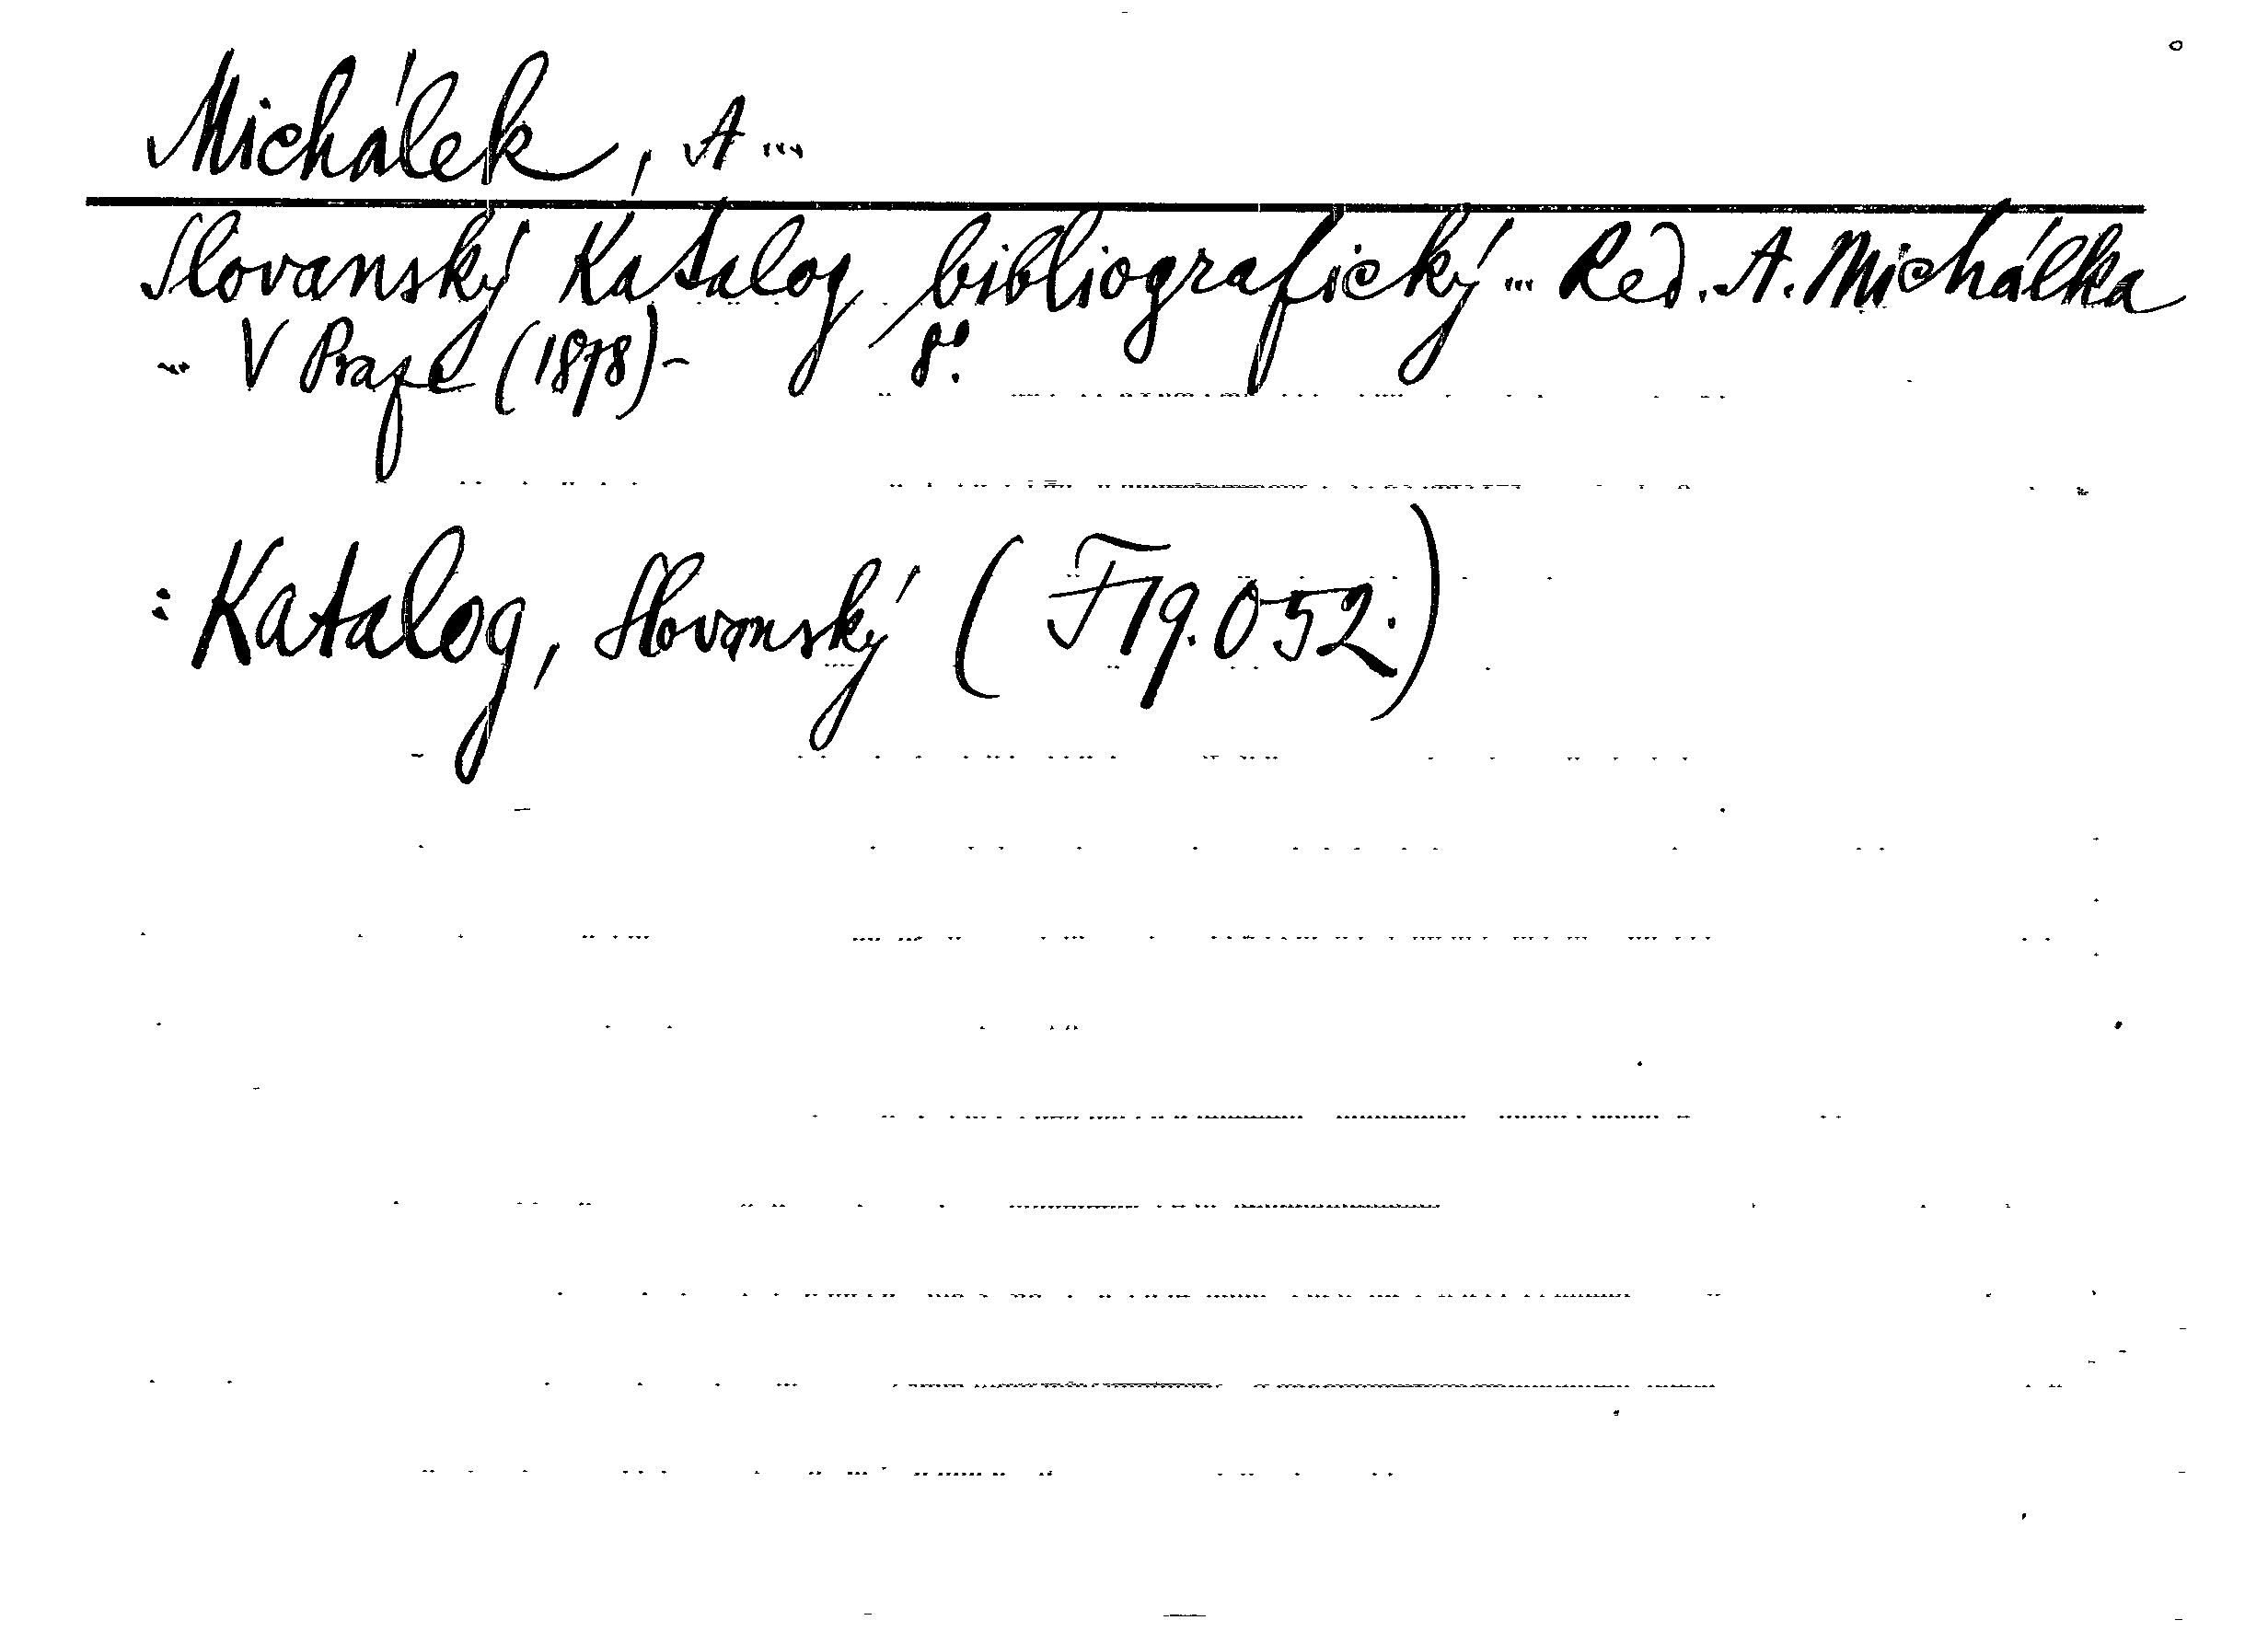 Michálek, A...
Slovanský Katalog bibliografický... Red. A. Michálka
... V Praze (1878)- 8º.
: Katalog, Slovanský (F19.052.)